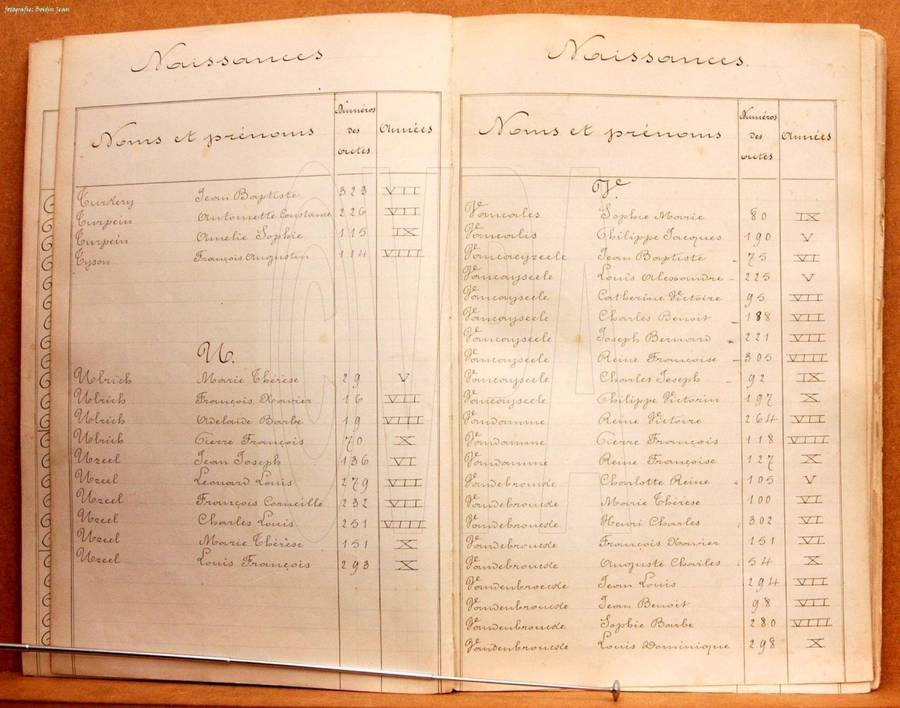 fotografie: Boidin Jean
Naissances
Noms et prénoms Numéros des actes Années
Turkery Jean Baptiste 323 VII
Turpein Antoinette Constance 226 VII
Turpein Amélie Sophie 115 IX
Tyson François Augustin 114 VIII
U.
Ulrich Marie Thérèse 29 V
Ulrich François Xavier 16 VII
Ulrich Adelaïde Barbe 19 VIII
Ulrich Pierre François 70 X
Uzeel Jean Joseph 136 VI
Uzeel Léonard Louis 279 VII
Uzeel François Corneille 232 VII
Uzeel Charles Louis 251 VIII
Uzeel Marie Thérèse 151 X
Uzeel Louis François 293 X
Naissances
Noms et prénoms Numéros des actes Années
Ve
Vancalis Sophie Marie 80 IX
Vancalis Philippe Jacques 190 V
Vancayzeele Jean Baptiste 75 VI
Vancayseele Louis Alexandre 225 V
Vancayseele Catherine Victoire 95 VII
Vancayseele Charles Benoit 188 VII
Vancayseele Joseph Bernard 221 VII
Vancayseele Reine Françoise 305 VIII
Vancayseele Charles Joseph 92 IX
Vancayseele Philippe Victorin 197 X
Vandamme Reine Victoire 264 VII
Vandamme Pierre François 118 VIII
Vandamme Reine Françoise 127 X
Vandebroucde Charlotte Reine 105 V
Vandebroucde Marie Thérèse 100 VI
Vandebroucde Henri Charles 302 VI
Vandebroucde François Xavier 151 VI
Vandebroucde Auguste Charles 54 X
Vandenbroucde Jean Louis 294 VII
Vandenbroucde Jean Benoit 98 VII
Vandenbroucde Sophie Barbe 280 VIII
Vandenbroucde Louis Dominique 298 X